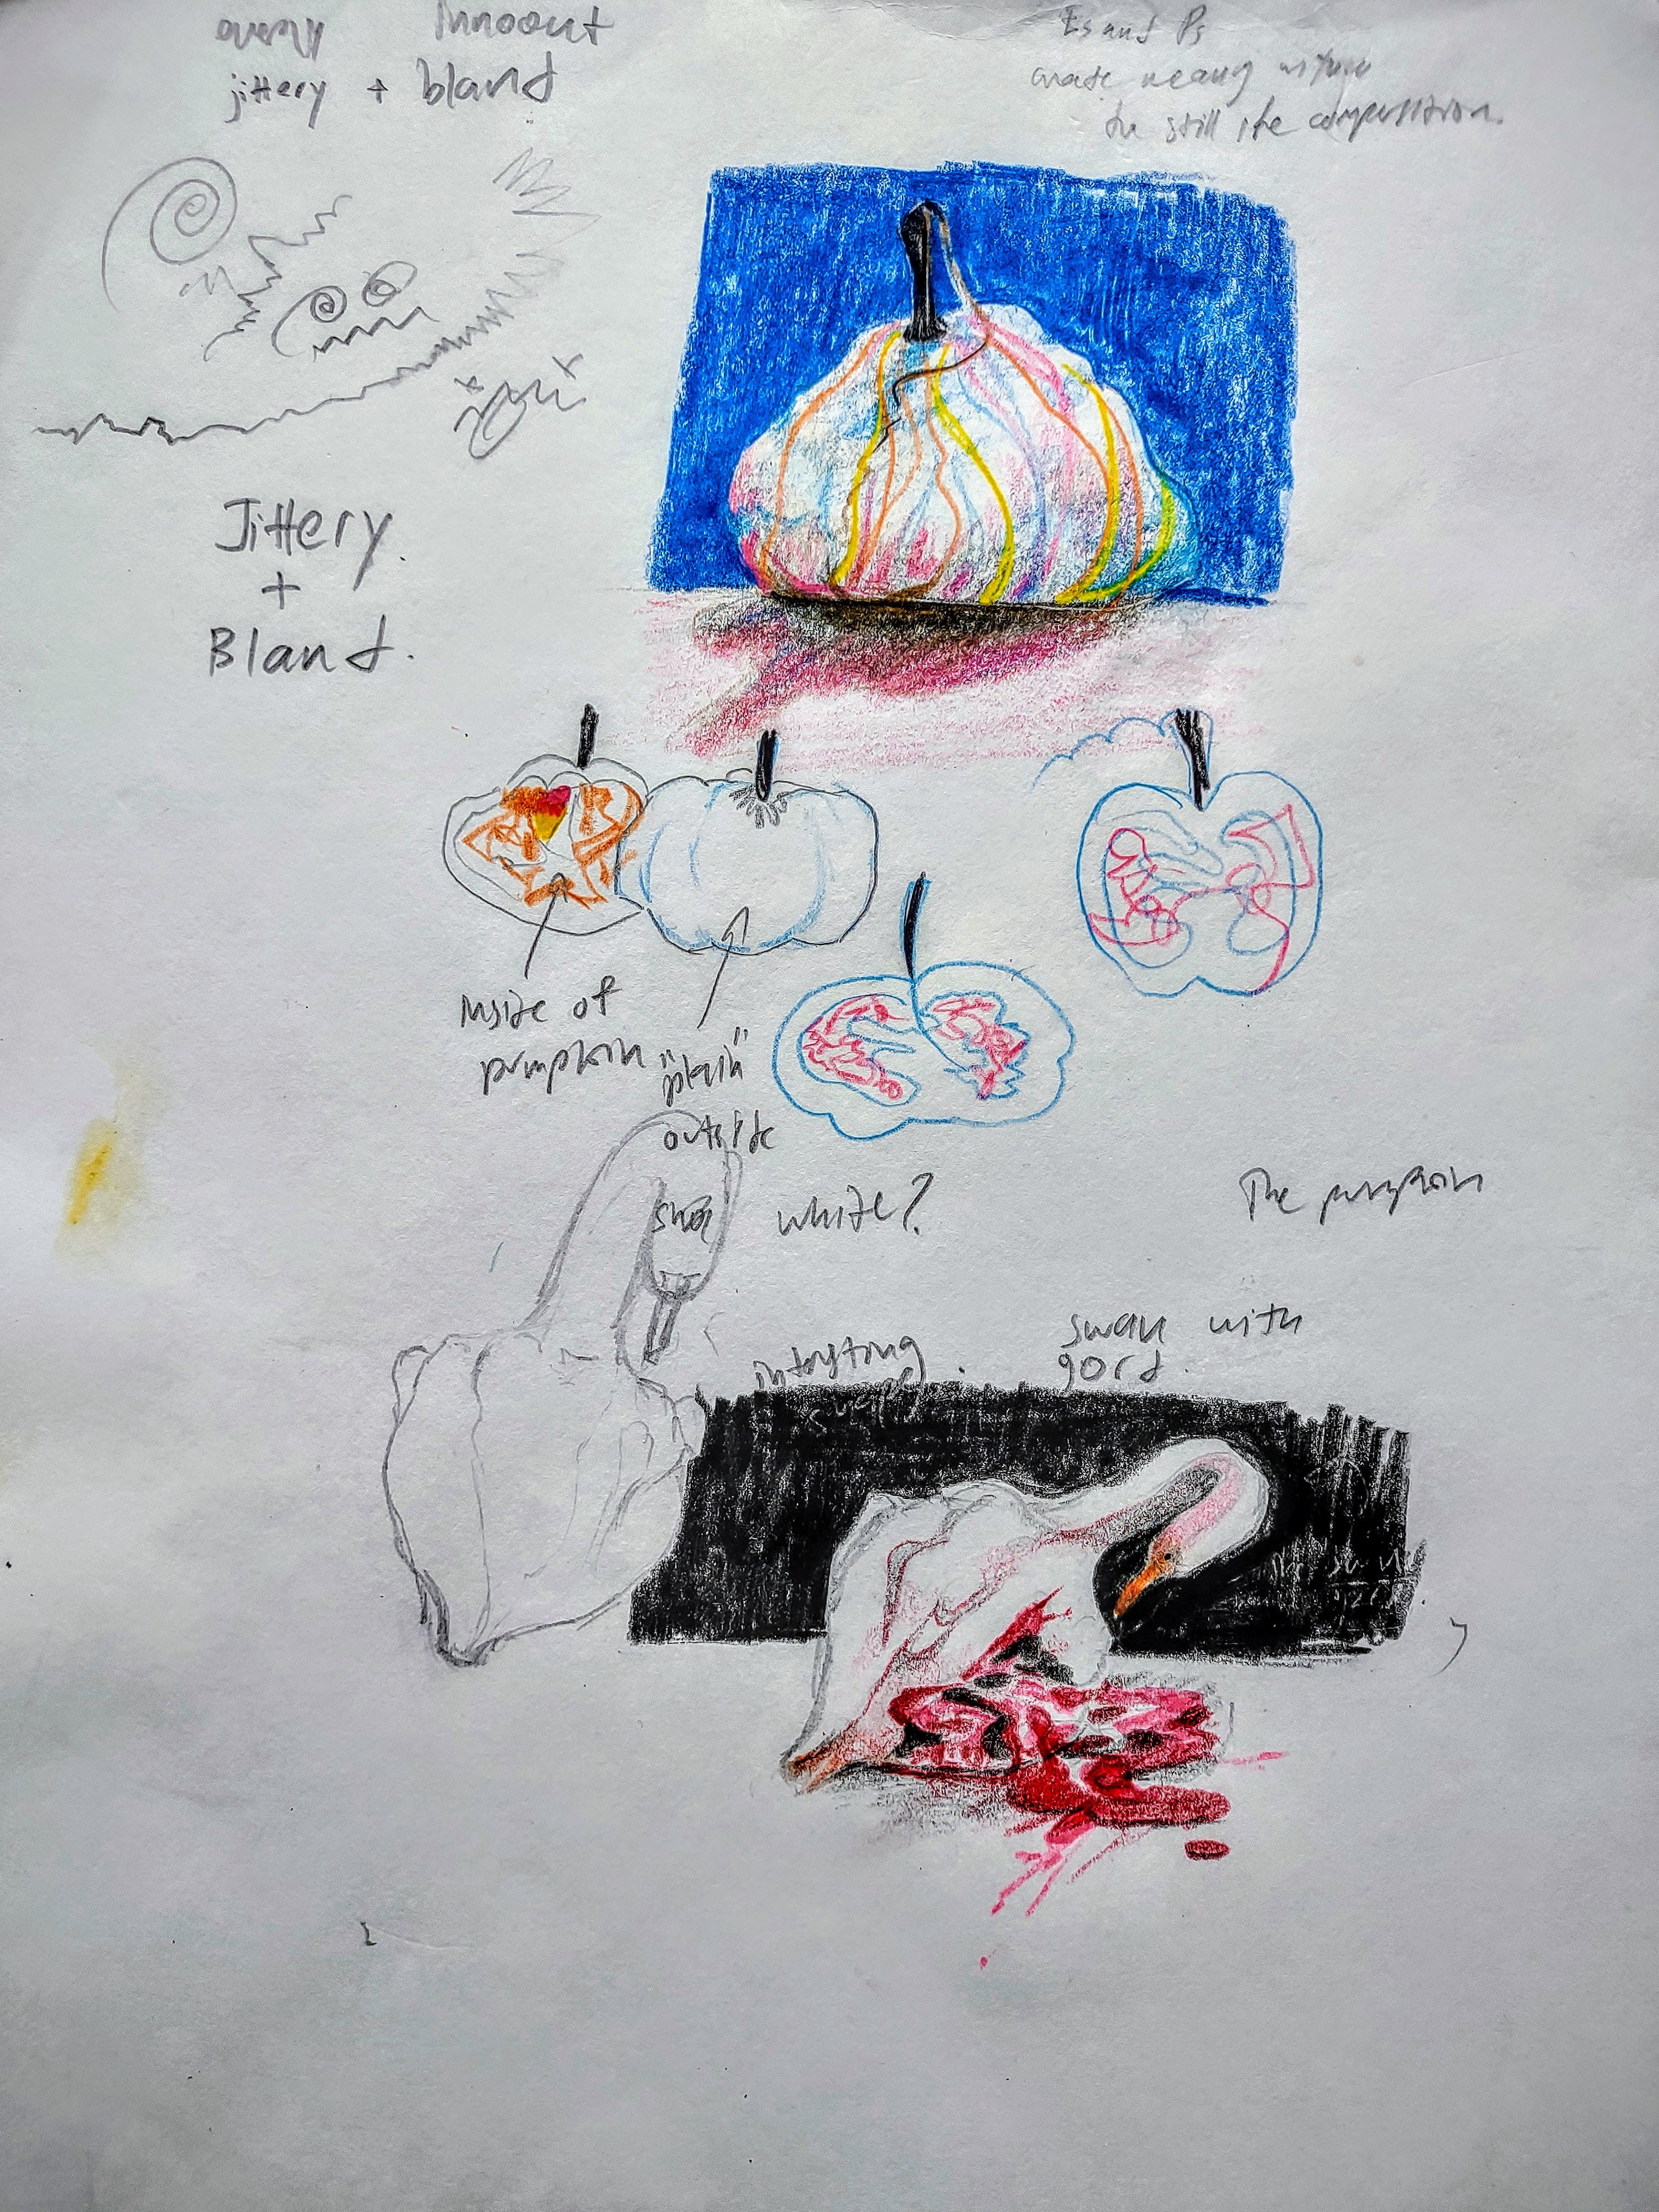 Innocent
jittery + bland
Es and Ps
create meaning within
the still life composition.
Jittery
+
Bland.
Inside of
pumpkin
"plain"
outside
white?
The pumpkin
interesting
swan with
gord.